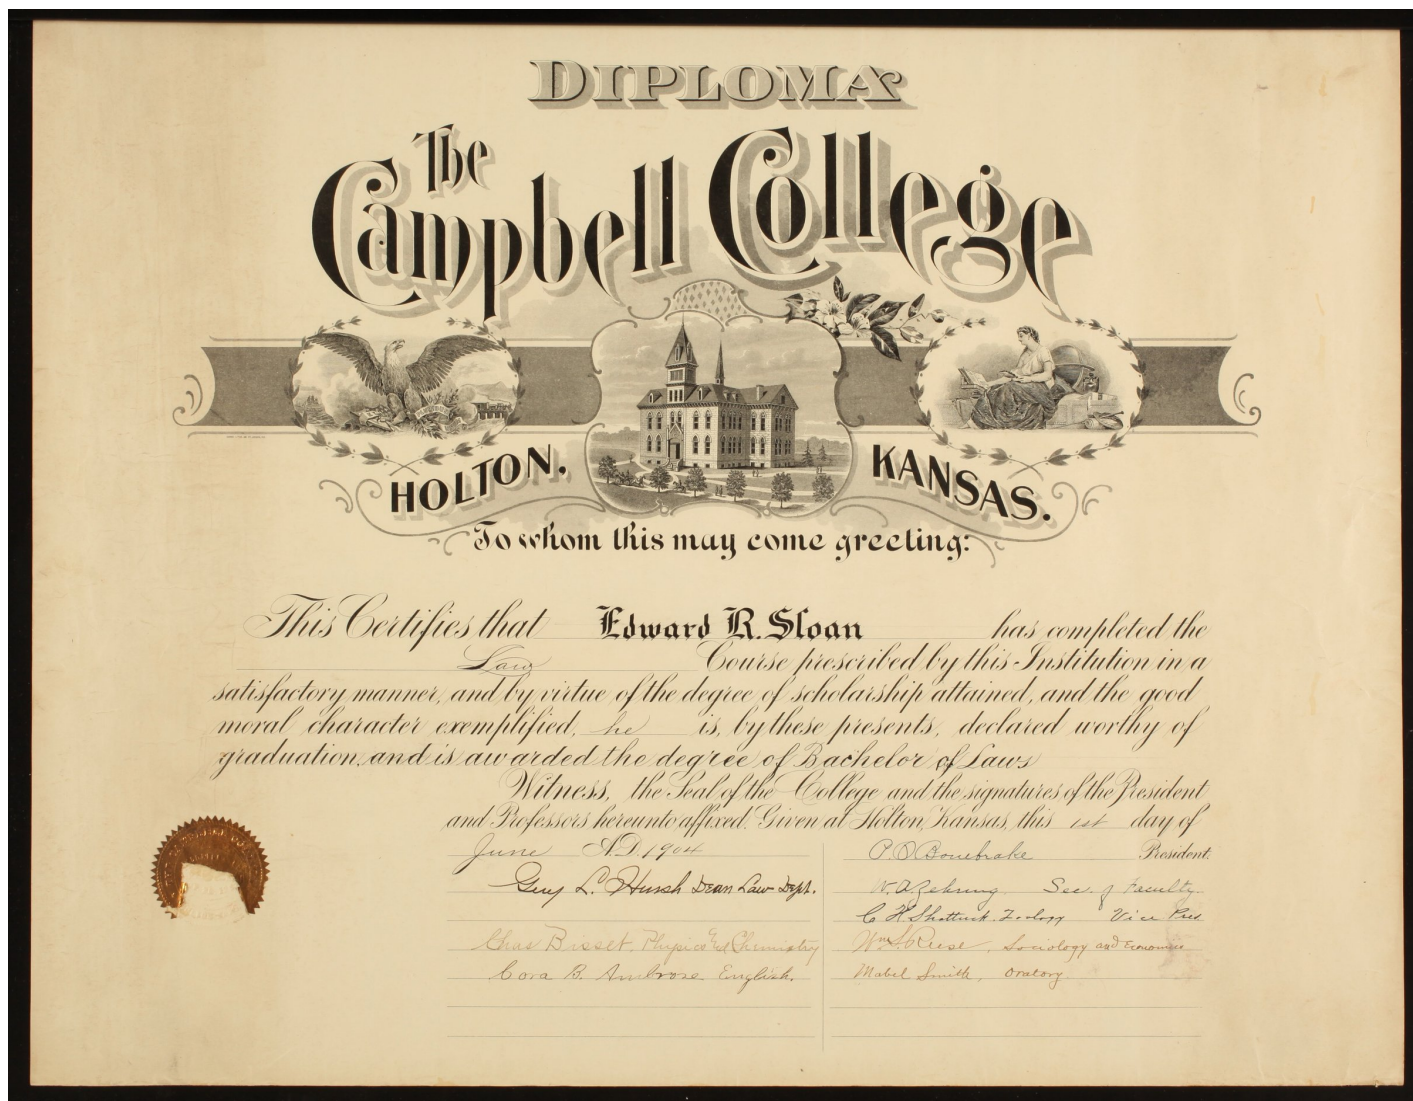 DIPLOMA
The
Campbell College
HOLTON, KANSAS.
To whom this may come greeting:
This Certifies that Edward R. Sloan has completed the
Law Course prescribed by this Institution in a
satisfactory manner, and by virtue of the degree of scholarship attained, and the good
moral character exemplified, he is, by these presents, declared worthy of
graduation, and is awarded the degree of Bachelor of Laws
Witness, the Seal of the College and the signatures of the President
and Professors hereunto affixed. Given at Holton, Kansas, this 1st day of
June A.D. 1904
Guy L. Hursh Dean Law Dept.
Chas Bisset, Physics and Chemistry
Cora B. Ambrose English.
P. O. Bonebrake President.
W. A. Zehring. Sec. of Faculty.
C H Shattuck. Zoology Vice Pres
Wm S. Reese, Sociology and Economics
Mabel Smith, Oratory